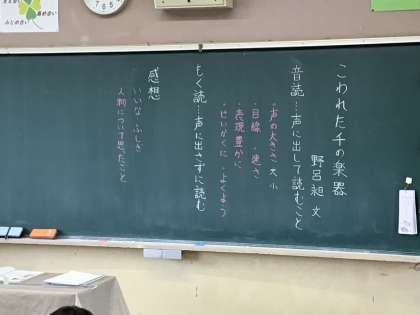 こわれた千の楽器
野呂昶 文
音読…声に出して読むこと
・声の大きさ 大小
・目線 ・速さ
・表現豊かに
・せいかくに ・よくよう
もく読…声に出さずに読む
感想
いいな・ふしぎ
人物について思ったこと